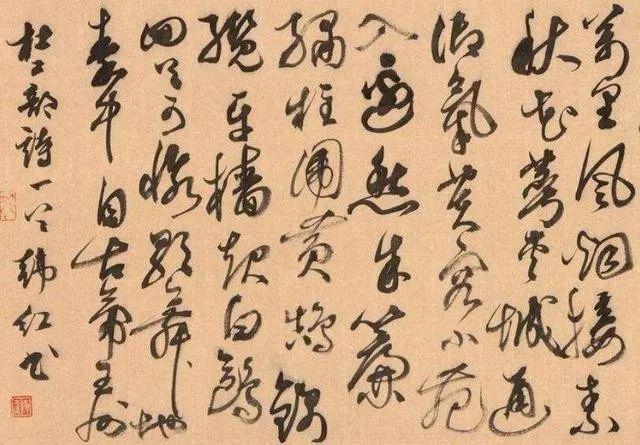 萬里風烟接素
秋花萼夾城通
御氣芙蓉小苑
入邊愁朱簾
繡柱圍黄鵠錦
纜牙檣起白鷗
回首可憐歌舞地
秦中自古帝王州
杜工部詩一首 韩红书